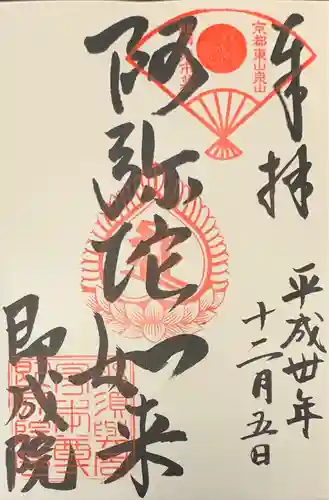 奉拝
平成卅年
十二月五日
京都東山泉山
阿弥陀如来
即成院